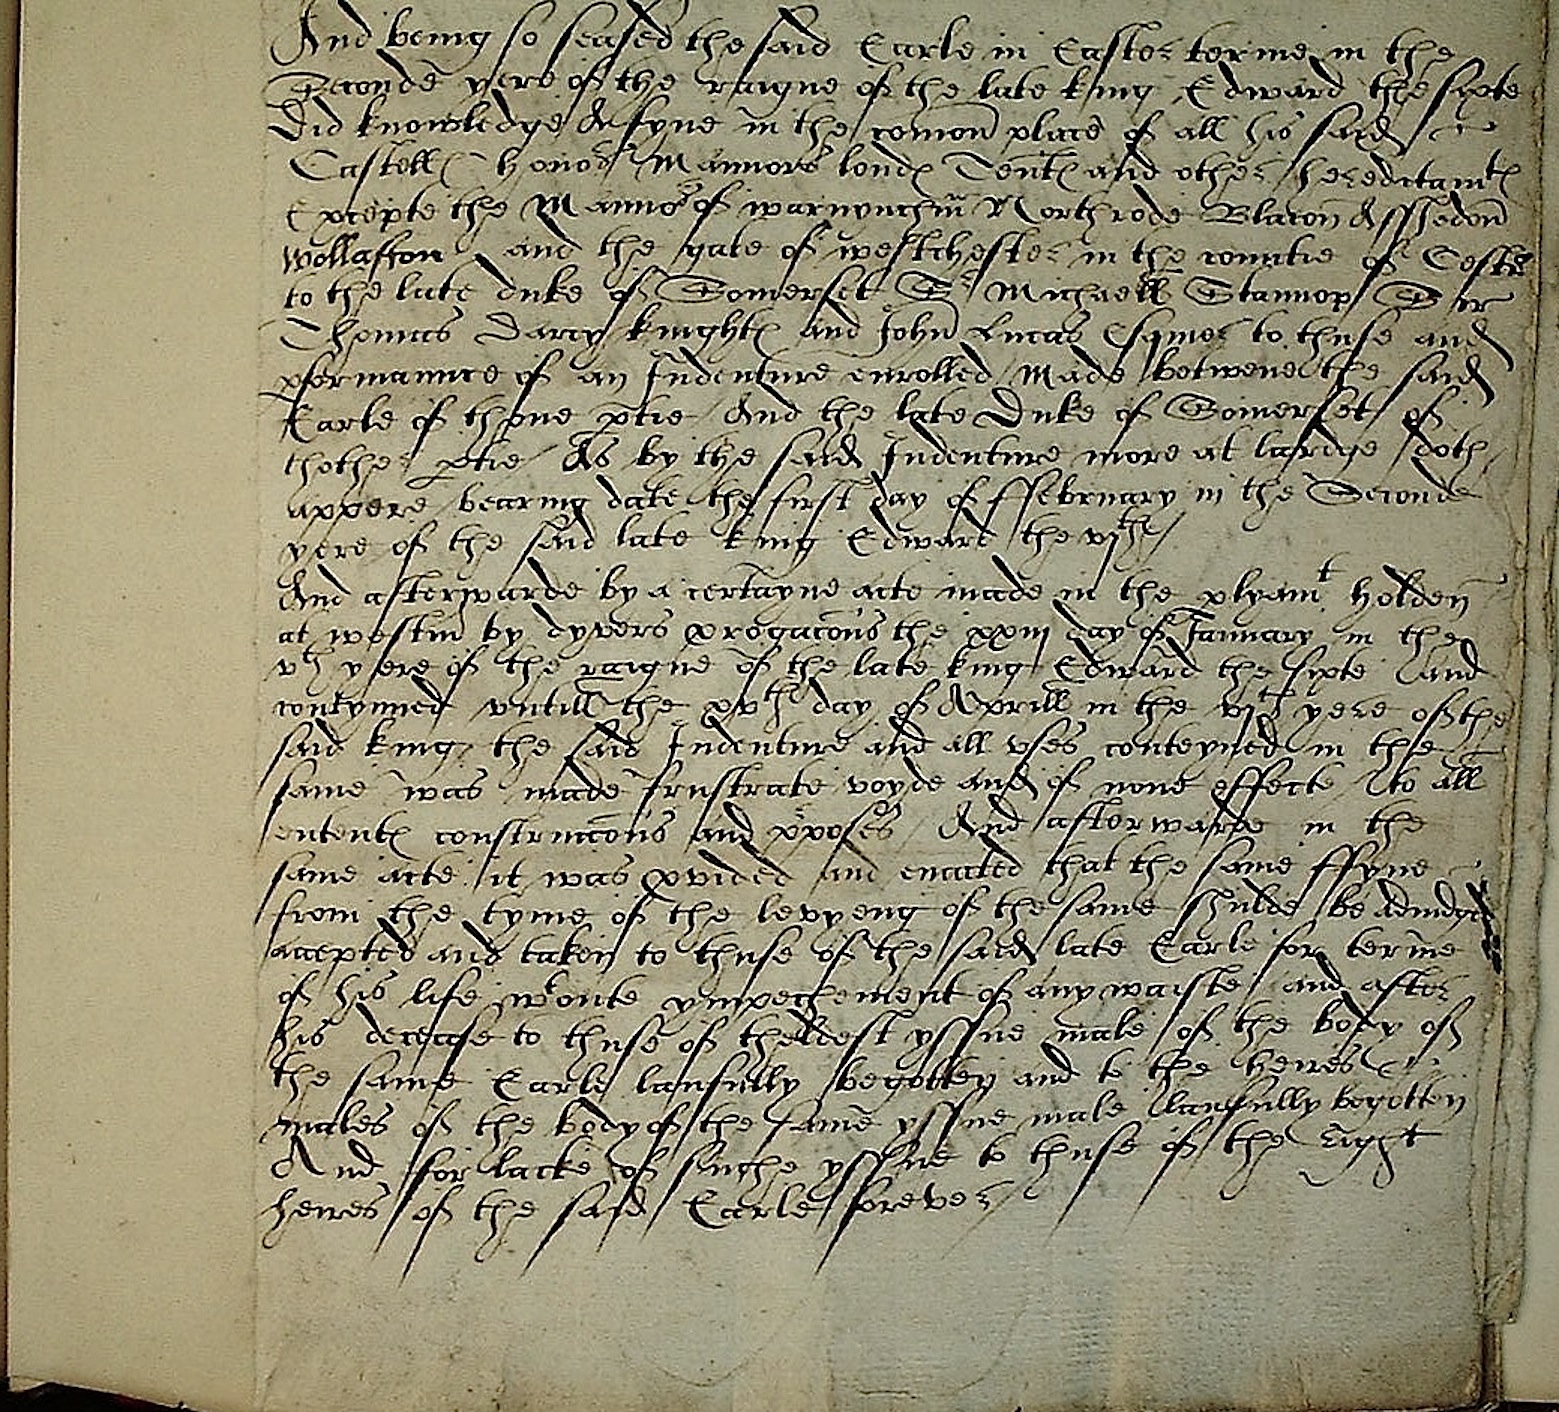 And being so seased the said Earle in Easter terme in the
Seconde yere of the raigne of the late king Edward the sixte
Did knowledge A fyne in the comon place of all his said
Castell honors Mannors lond Tent and other hereditamt
Excepte the Mannor of warnyngham Northrode Blacon Asshedon
Wollaston and the gate of westchester in the countie of Cestr
to the late duke of Somerset Sr Michaell Stannop Sir
Thomas Darcy knight and John Lucas Esquier to thuse and
pformaunce of an Indenture enrolled Made betwene the said
Earle of thone ptie And the late Duke of Somerset of
thother ptie As by the said Indenture more at lardge doth
appere bearing date the first day of ffebruary in the Seconde
yere of the said late king Edward the vjth
And afterwarde by a certayne acte made in the plyamt holden
at westm by dyvers progacons the xxiij day of January in the
vth yere of the raigne of the late king Edward the sixte and
contynued untill the xvth day of Aprill in the vjth yere of the
said king the said Indenture and all uses conteyned in the
same was made frustrate voyde and of none effecte to all
entent construccons and pposes And afterwarde in the
same acte it was pvided and enacted that the same ffyne
from the tyme of the levyeng of the same shulde be adiudged
accepted and taken to thuse of the said late Earle for terme
of his life wtoute ympechement of any waiste and after
his decease to thuse of theldest yssue male of the body of
the same Earle laufully begotten and to the heires
males of the body of the same yssue male laufully begotten
And for lacke of suche yssue to thuse of the Right
heires of the said Earle forever